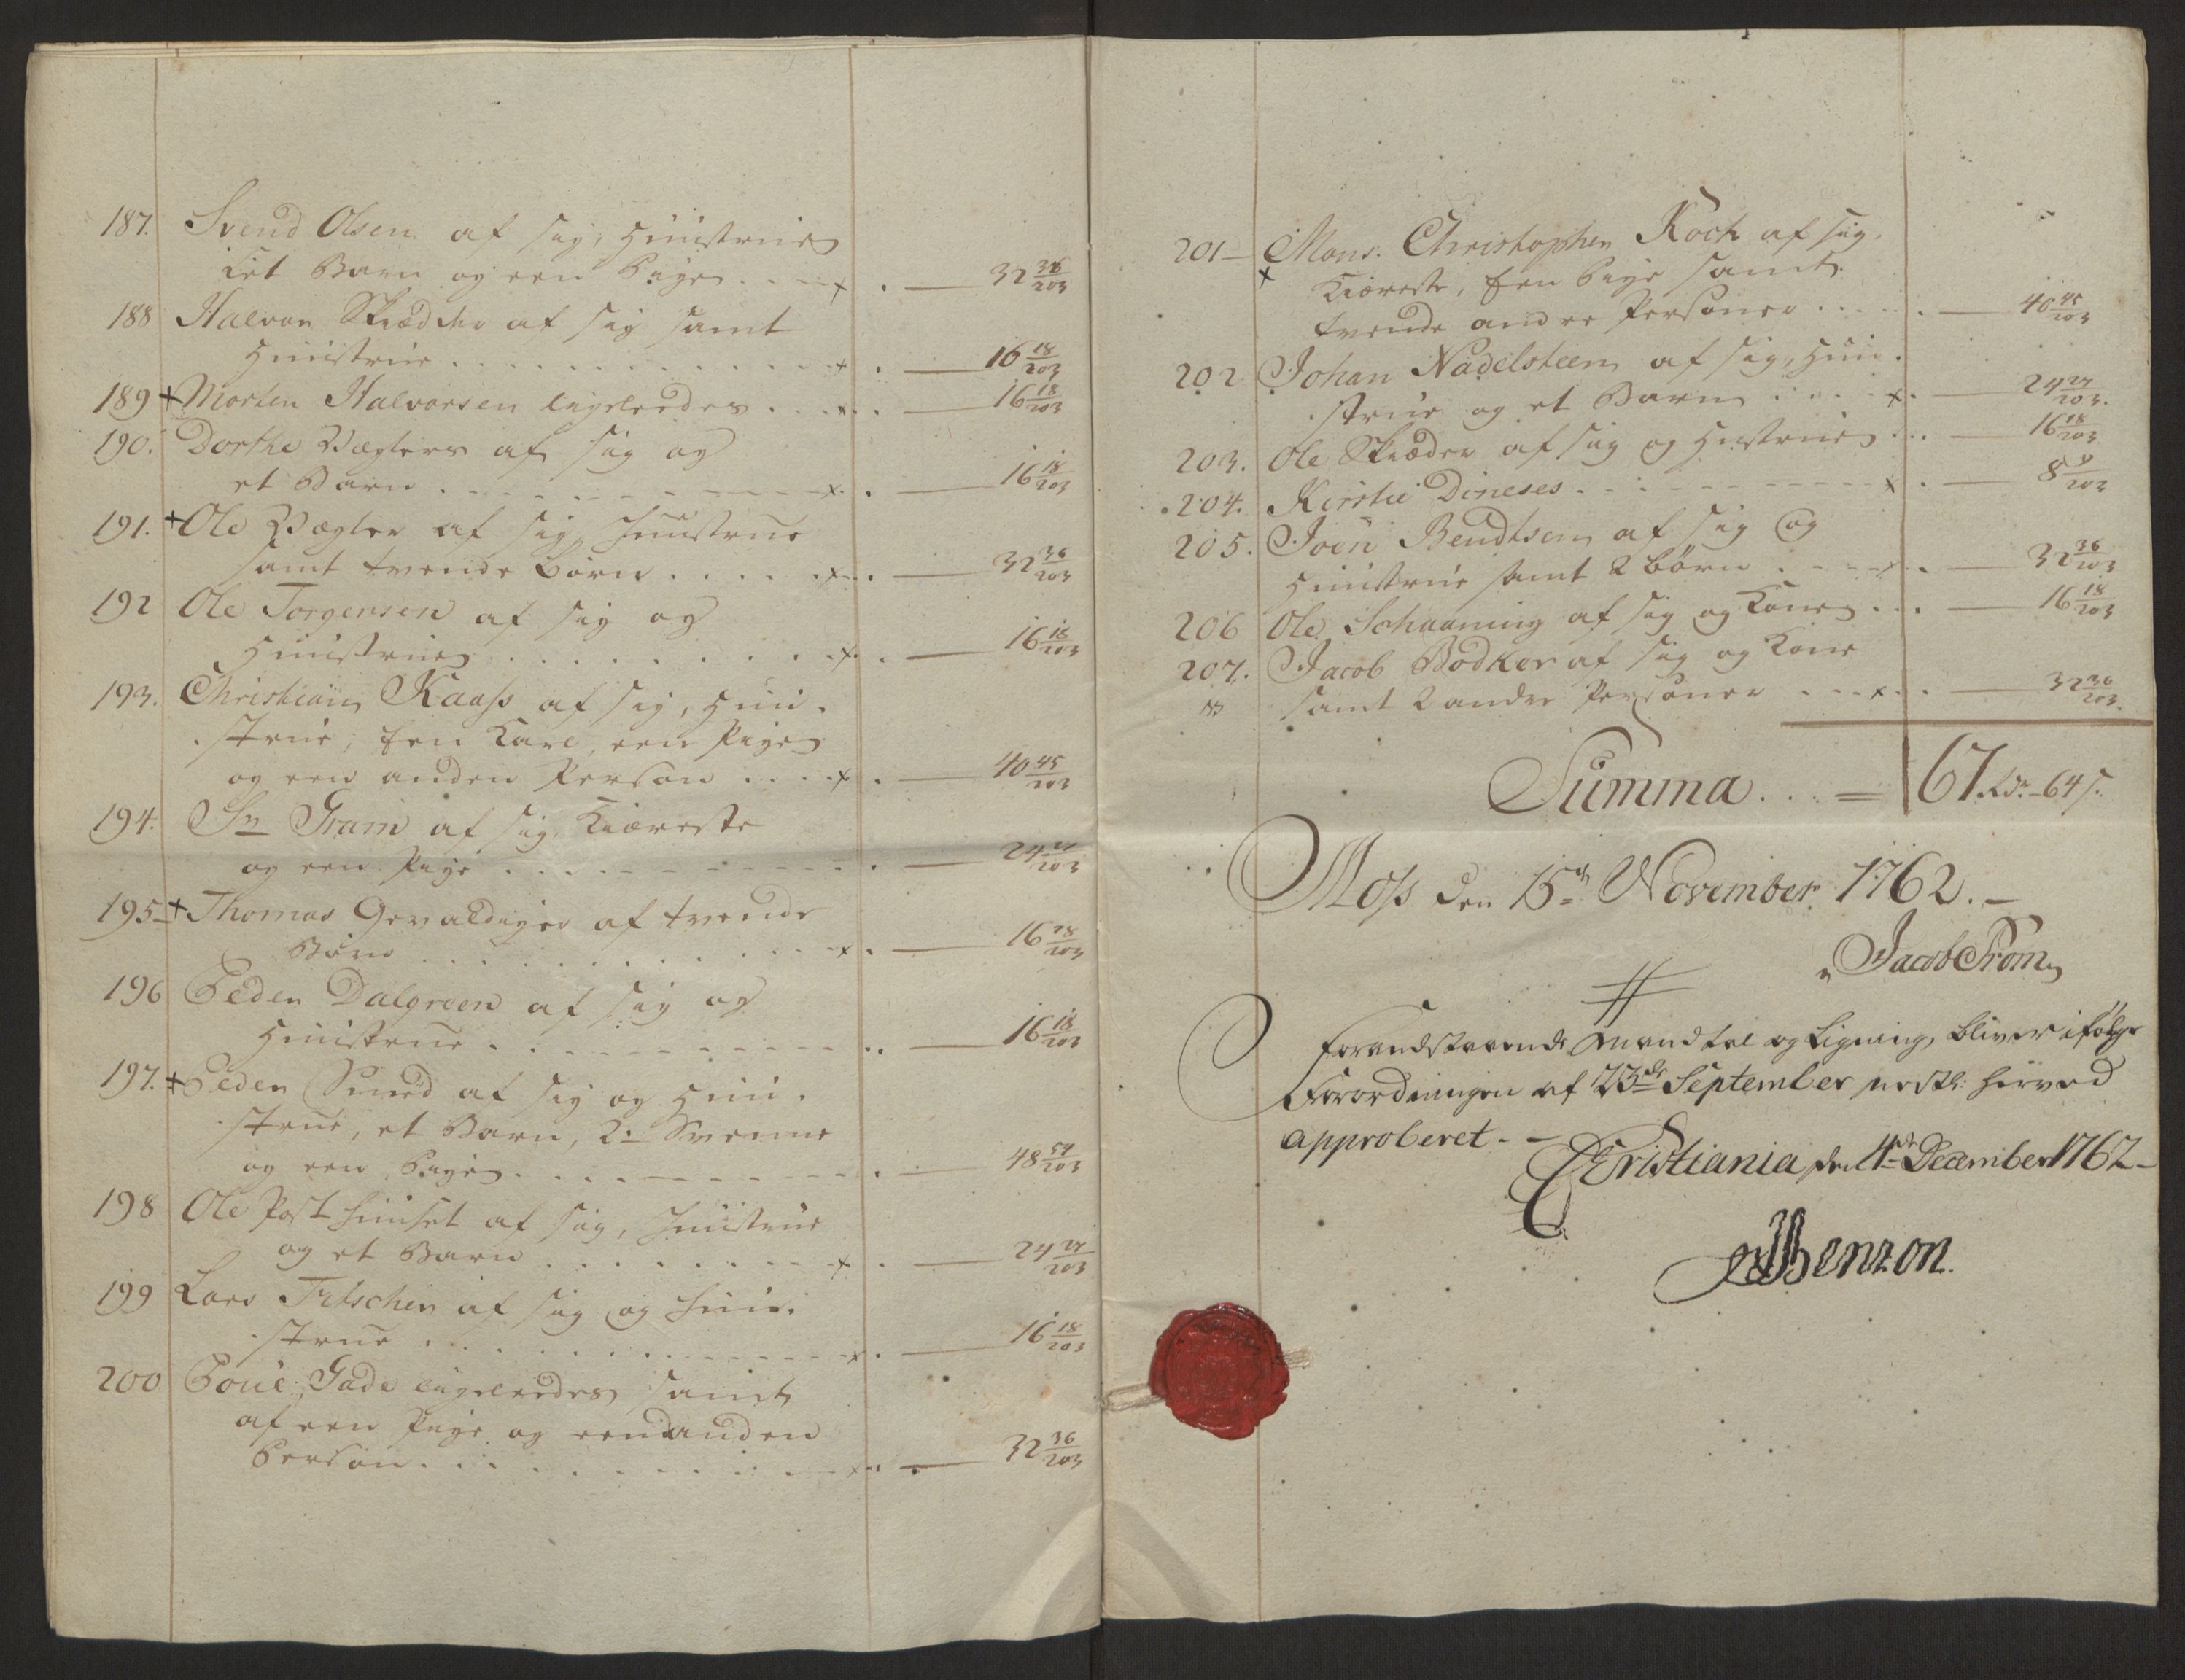 187. Svend Olsen af sig, Huustrue
Eet Barn og een Pige . . . . x . — 32 36/203
188 Halvor Skræder af sig samt
Huustrue . . . . . . . x . — 16 18/203
189 + Morten Halvorsen ligeleedes . . . x . — 16 18/203
190. Dorthe Vægters af sig og
et Barn . . . . . . . x . — 16 18/203
191. + Ole Vægter af sig, Huustrue
samt tvende Børn . . . . . x . — 32 36/203
192 Ole Torgersen af sig og
Huustrue . . . . . . . x . — 16 18/203
193. Christian Kaass af sig, Huu-
strue, Een Karl, een Pige
og een anden Person . . . . x . — 40 45/203
194. Sr Gram af sig, Kiæreste
og een Pige . . . . . . . — 24 27/203
195 – + Thomas Gevaldiger af tvende
Børn . . . . . . . x . — 16 18/203
196 Peder Dalgreen af sig og
Huustrue . . . . . . . — 16 18/203
197. + Peder Smed af sig og Huu-
strue, et Barn, 2 Svenne
og een Pige . . . . . . . — 48 54/203
198 Ole Posthuuset af sig, Huustrue
og et Barn . . . . . . . x . — 24 27/203
199 Lars Fitscher af sig og Huu-
strue . . . . . . . x . — 16 18/203
200 Poul Gade ligeleedes samt
af een Pige og een anden
Person . . . . . . . x . — 32 36/203
201 – Mons. Christopher Koch af sig
+ Kiæreste, Een Pige samt
tvende andre Personer . . . . . — 40 45/203
202 Johan Nadelsteen af sig, Huu-
strue og et Barn . . . . x . — 24 27/203
203. Ole Skræder af sig og Hustrue . . . — 16 18/203
204. Kirstie Dineses . . . . . . . x . — 8 9/203
205. Joen Bendtsen af sig og
Huustrue samt 2 børn . . . . x . — 32 36/203
206 Ole Schaaning af sig og Kone . . . — 16 18/203
207. Jacob Bødker af sig og Kone
samt 2 andre Personer . . . x . — 32 36/203
Summa . . . = 67 Rdr – 64 s.
Moss den 15de November 1762. –
Jacob From
Forandstaaende Mandtal og Ligning, bliver ifølge
Forordningen af 23de September nestl: herved
approberet - –
Christiania den 4de December 1762 –
Benzon.